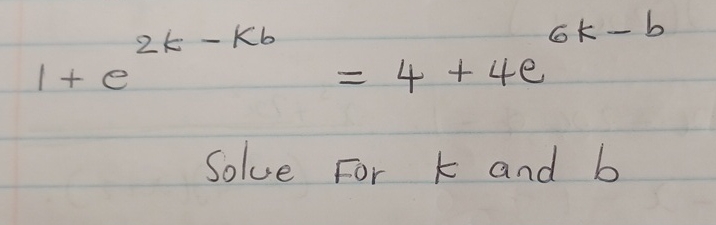 1 + e^{2k - Kb} = 4 + 4e^{6k - b}
Solve For k and b